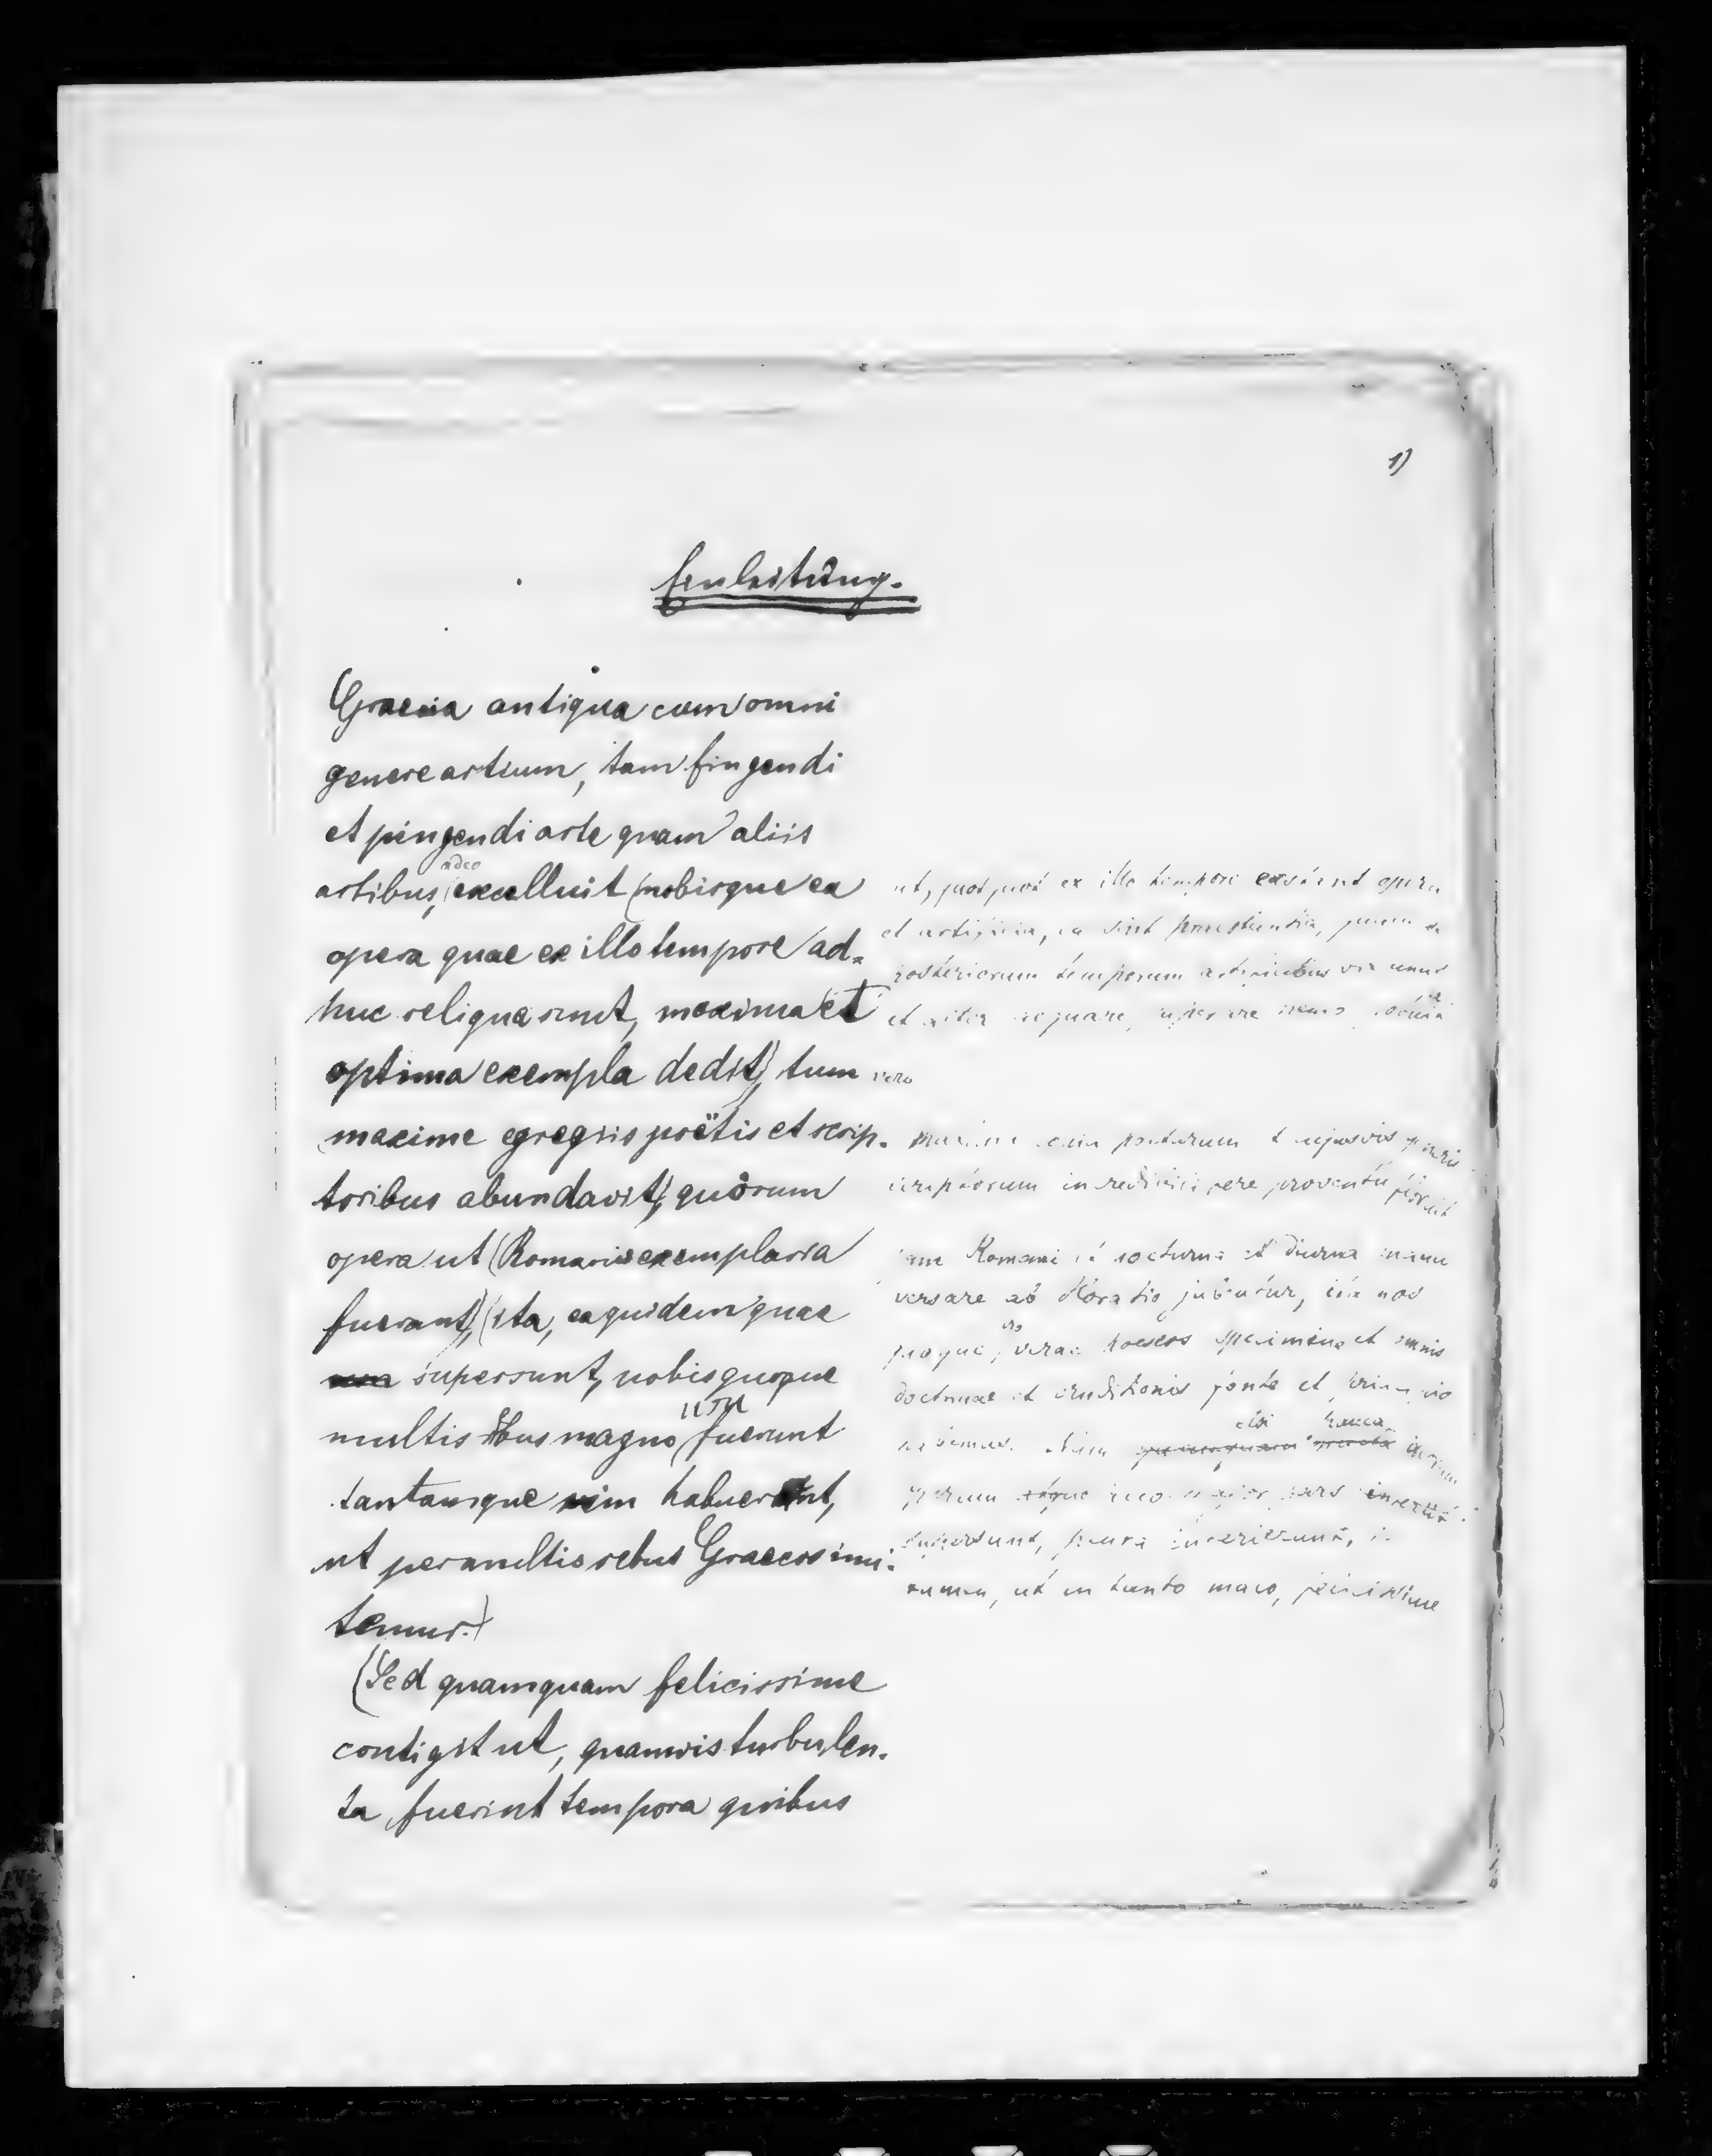 1)
Einleitung.
Graecia antiqua cum omni
genere artium, tam fingendi
et pingendi arte quam aliis
adeo
artibus, excelluit (nobisque ea
opera quae ex illo tempore ad-
huc reliqua sunt, maxima et
optima exempla dedit), tum vero
(maxime egregiis poëtis et scrip-
toribus abundavit), quorum
opera ut (Romanis exemplaria
fuerant,) (ita, ea quidem quae
supersunt, nobis quoque
usu
multis rebus magno fuerunt
tantamque vim habuerunt,
ut permultis rebus Graecos imi-
temur.)
(Sed quamquam felicissime
contigit ut, quamvis turbulen-
ta fuerint tempora quibus
ut, quot quot ex illo tempore exstant opera
et artificia, ea sint praestantia, quem ea
posteriorum temporum artificibus vix unus
et alter aequare, superare nemo
maxime poetarum et cujusvis generis
scriptorum incredibili fere proventu floruit
Romani et nocturna et diurna manu
versare ab Horatio jubentur, ita nos
quoque, verae poeseos specimina et omnis
doctrinae et eruditionis fonte et
habemus. Nam etsi pauca
major pars
supersunt, plura interierunt,
tamen, ut in tanto malo, felicissime